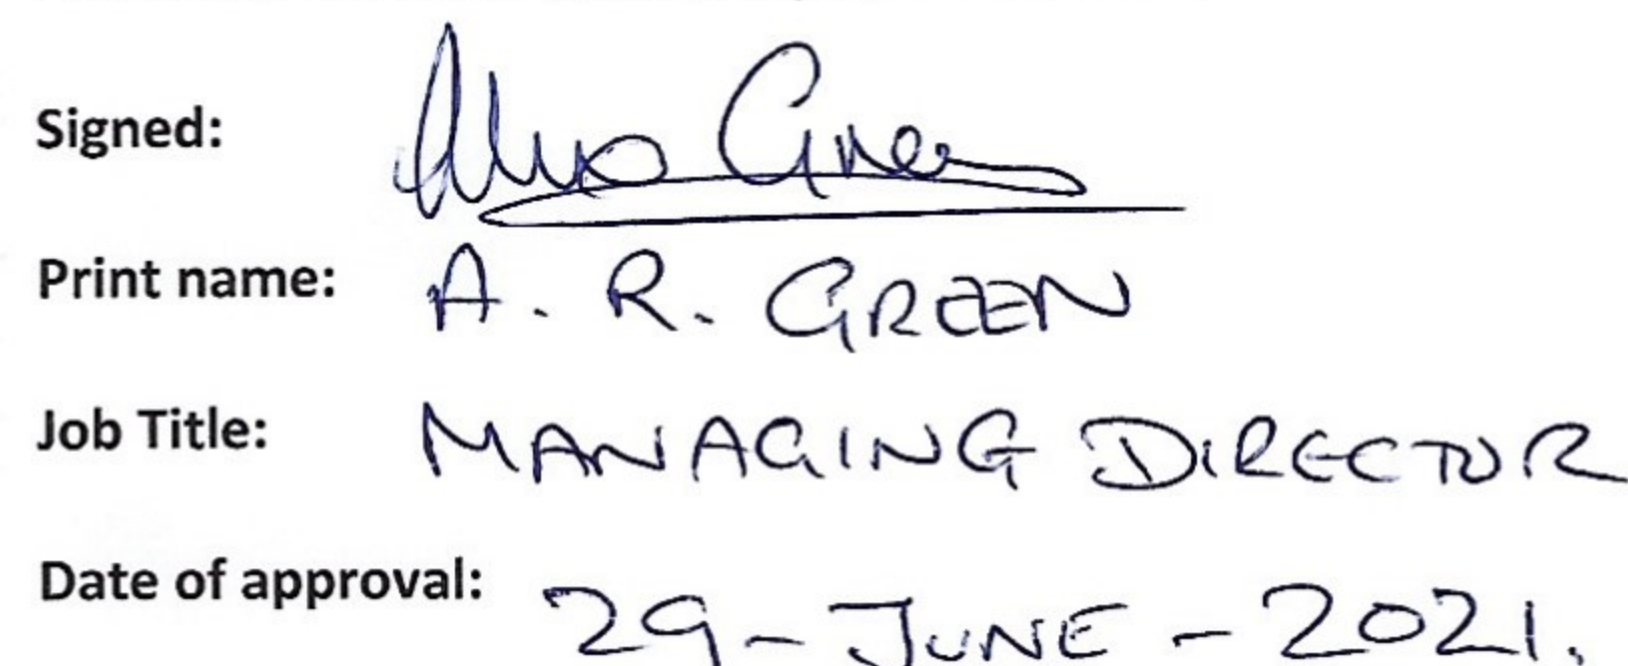 Signed: Green
Print name: A. R. GREEN
Job Title: MANAGING DIRECTOR
Date of approval: 29-JUNE-2021.